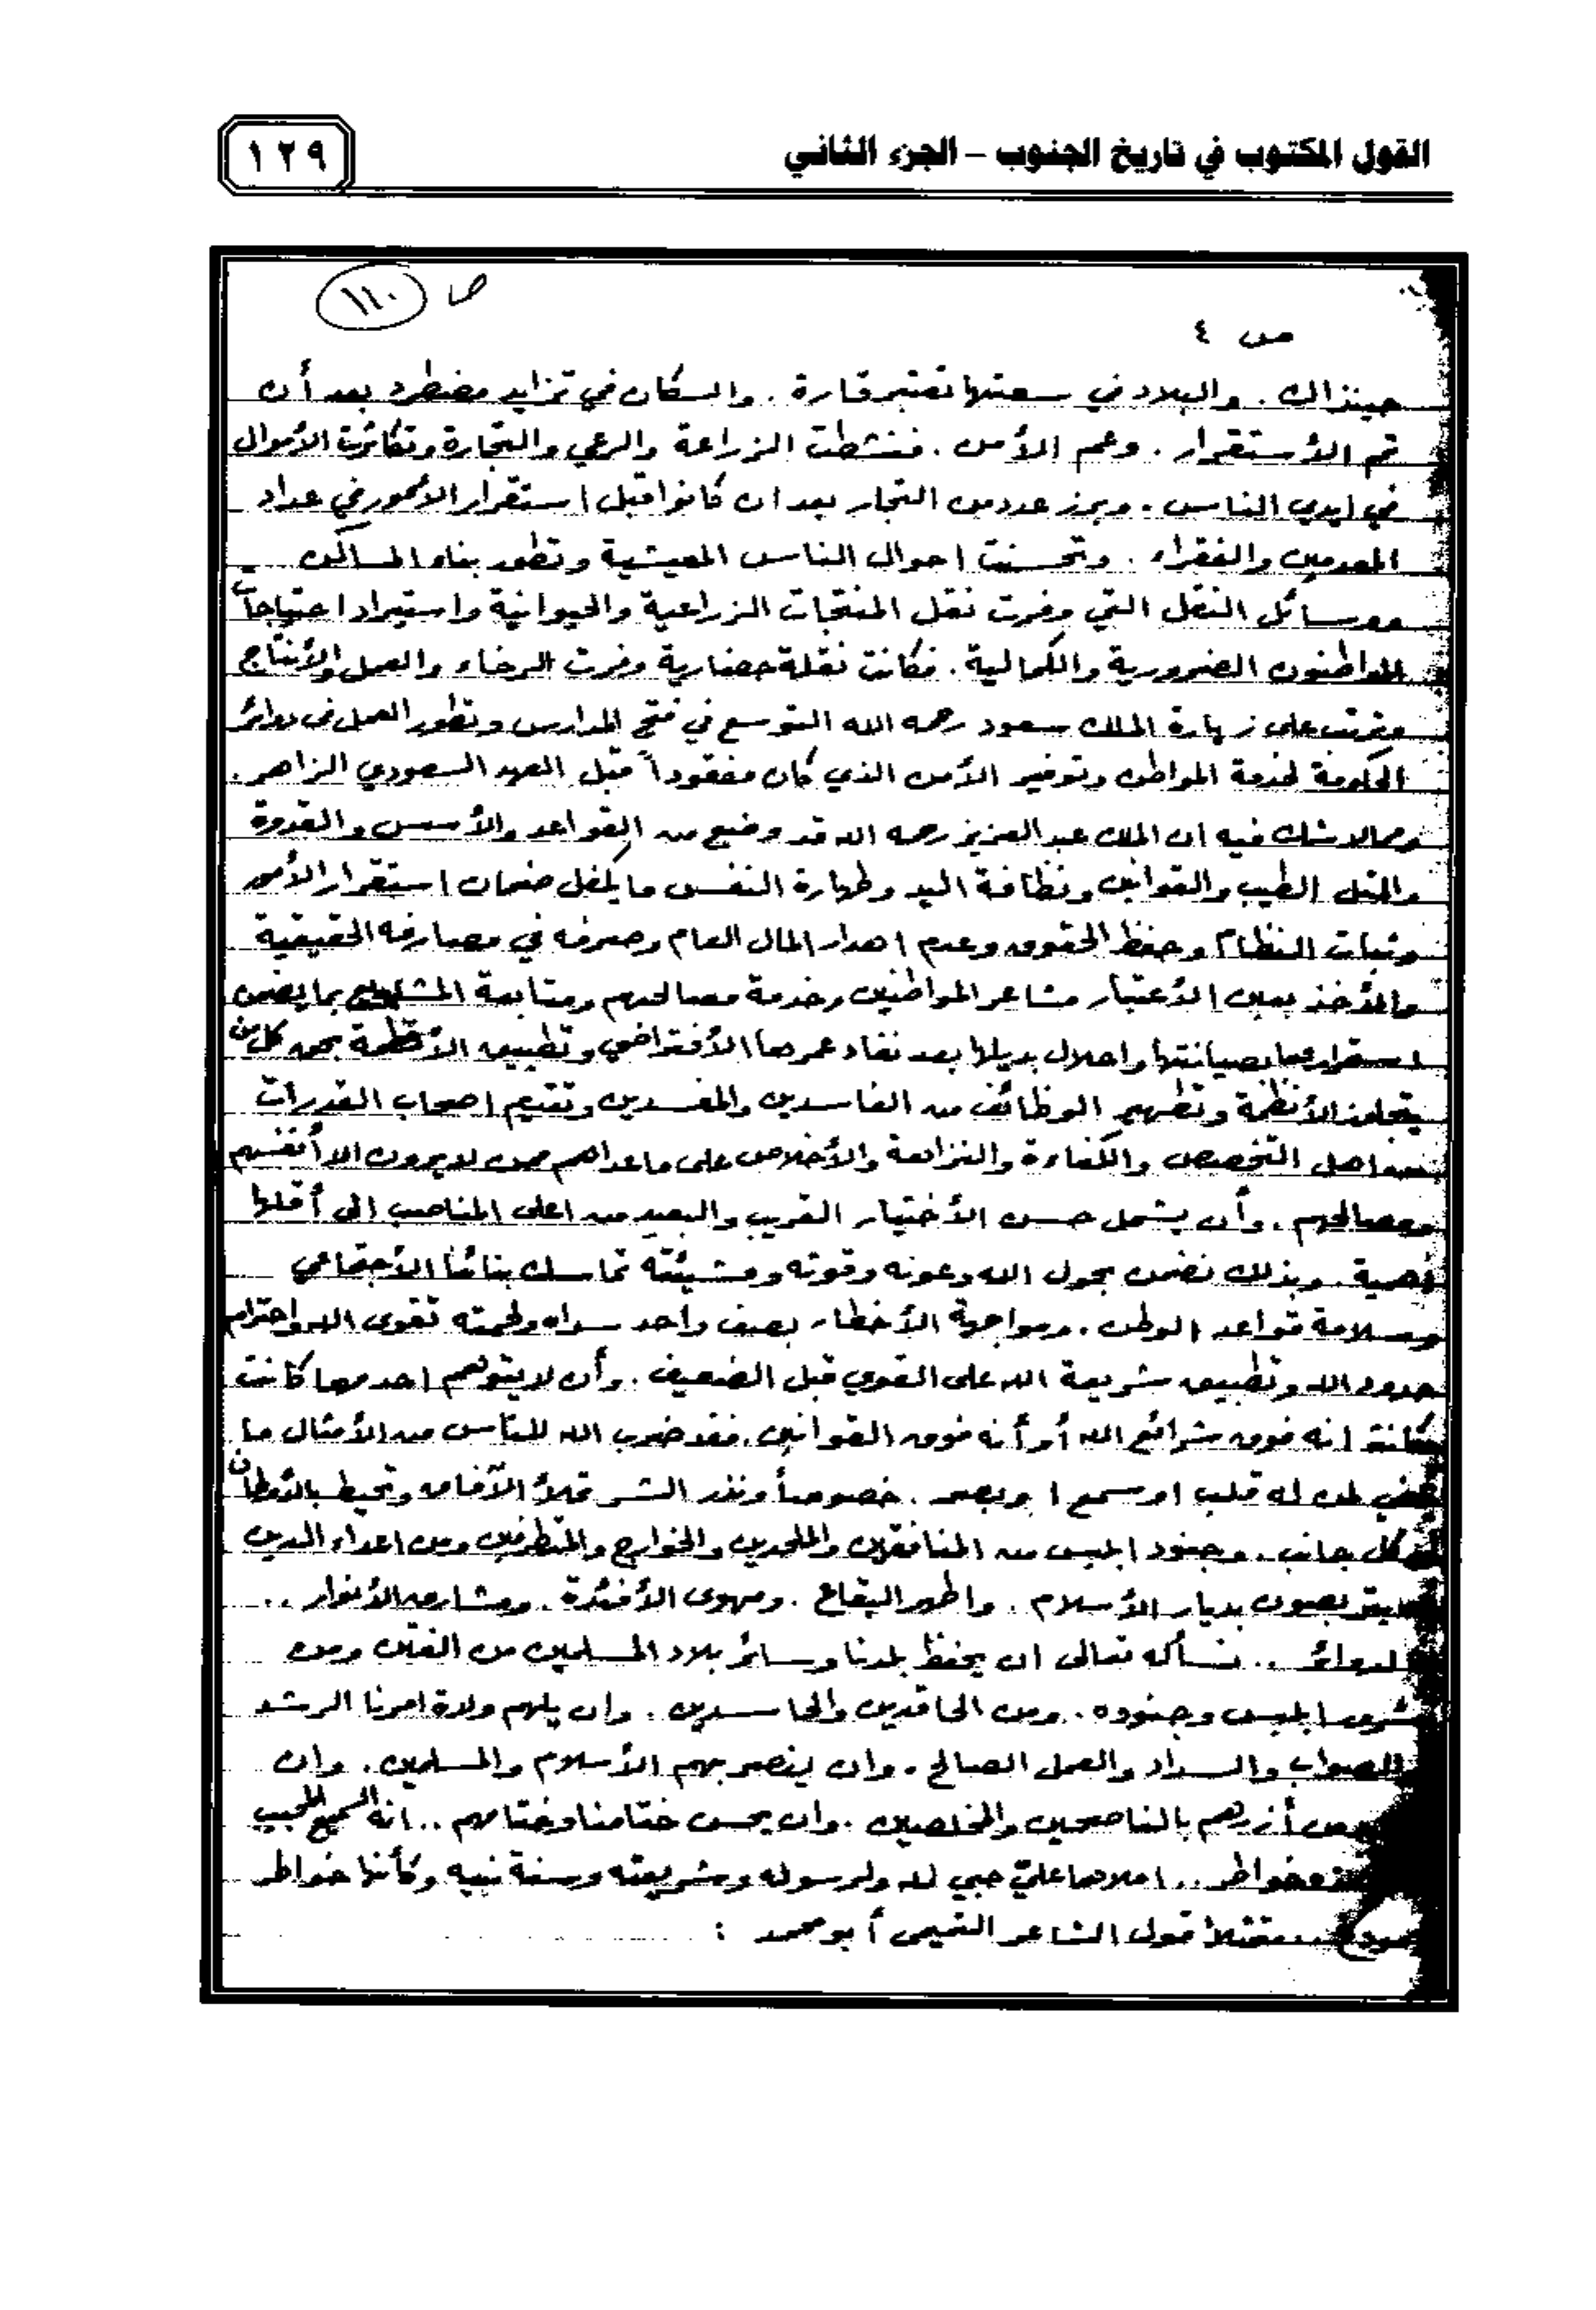 القول المكتوب في تاريخ الجنوب – الجزء الثاني
١٢٩
ص ١١٠
ص ٤
حينذاك . والبلاد في سعتها تعتبر قارة . والسكان في تزايد مضطرد بعد أن
تم الأستقرار . وعم الأمن . فنشطت الزراعة والرعي والتجارة وتكاثرت الأموال
في ايدي الناس . وبرز عدد من التجار بعد ان كانوا قبل استقرار الأمور في عداد
المعدمين والفقراء . وتحسنت احوال الناس المعيشية وتطور بناء المساكن
ووسائل النقل التي وفرت نقل المنتجات الزراعية والحيوانية واستيراد احتياجات
المواطنون الضرورية والكمالية . فكانت نقلة حضارية وفرت الرخاء والعمل والأنتاج
وترتب على زيارة الملك سعود رحمه الله التوسع في فتح المدارس وتطور العمل في دوائر
الحكومة لخدمة المواطن وتوفير الأمن الذي كان مفقوداً قبل العهد السعودي الزاهر .
ومما لا شك فيه ان الملك عبدالعزيز رحمه الله قد وضع من القواعد والأسس والقدوة
والمثل الطيب والقوانين ونظافة اليد وطهارة النفس ما يكفل ضمان استقرار الأمور
وثبات النظام وحفظ الحقوق وعدم اهدار المال العام وصرفه في مصارفه الحقيقية
والأخذ بعين الأعتبار مشاعر المواطنين وخدمة مصالحهم ومتابعة المشاريع بما يضمن
استمرارها بصيانتها واحلال بديلها بعد نفاد عمرها الأفتراضي وتطبيق الأنظمة بحق كل من
يتجاوز الأنظمة وتطهير الوظائف من الفاسدين والمفسدين وتقديم اصحاب القدرات
من اهل التخصص والكفاءة والنزاهة والأخلاص على ما عداهم ممن لا يرون الا أنفسهم
ومصالحهم . وأن يشمل حسن الأختيار القريب والبعيد من اعلى المناصب الى أقلها
أهمية . وبذلك نضمن بحول الله وعونه وقوته ومشيئته تماسك بنائنا الأجتماعي
وسلامة قواعد الوطن . ومواجهة الأخطار بصف واحد سداه ولحمته تقوى الله واحترام
حدود الله وتطبيق شريعة الله على القوي قبل الضعيف . وأن لا يتوهم احد مهما كانت
مكانته انه فوق شرائع الله أو أنه فوق القوانين . فقد ضرب الله للناس من الأمثال ما
يكفي لمن له قلب او سمع او بصر . خصوصاً ونذر الشر تملأ الآفاق وتحيط بالأوطان
من كل جانب . وجنود ابليس من المنافقين والملحدين والخوارج والمتطرفين ومن اعداء الدين
يتربصون بديار الأسلام . واطهر البقاع . ومهوى الأفئدة . ومشارق الأنوار ..
الدوائر .. نسأله تعالى ان يحفظ بلدنا وسائر بلاد المسلمين من الفتن ومن
شرور ابليس وجنوده . ومن الحاقدين والحاسدين . وان يلهم ولاة امرنا الرشد
والصواب والسداد والعمل الصالح . وان ينصر بهم الأسلام والمسلمين . وان
أزرهم بالناصحين والمخلصين . وان يحسن ختامنا وختامهم .. انه السميع المجيب
خواطر .. املاها عليّ حبي لله ولرسوله وشريعته وسنة نبيه وكأنها خواطر
مودع .. متمثلاً قول الشاعر التميمي أبو محمد :